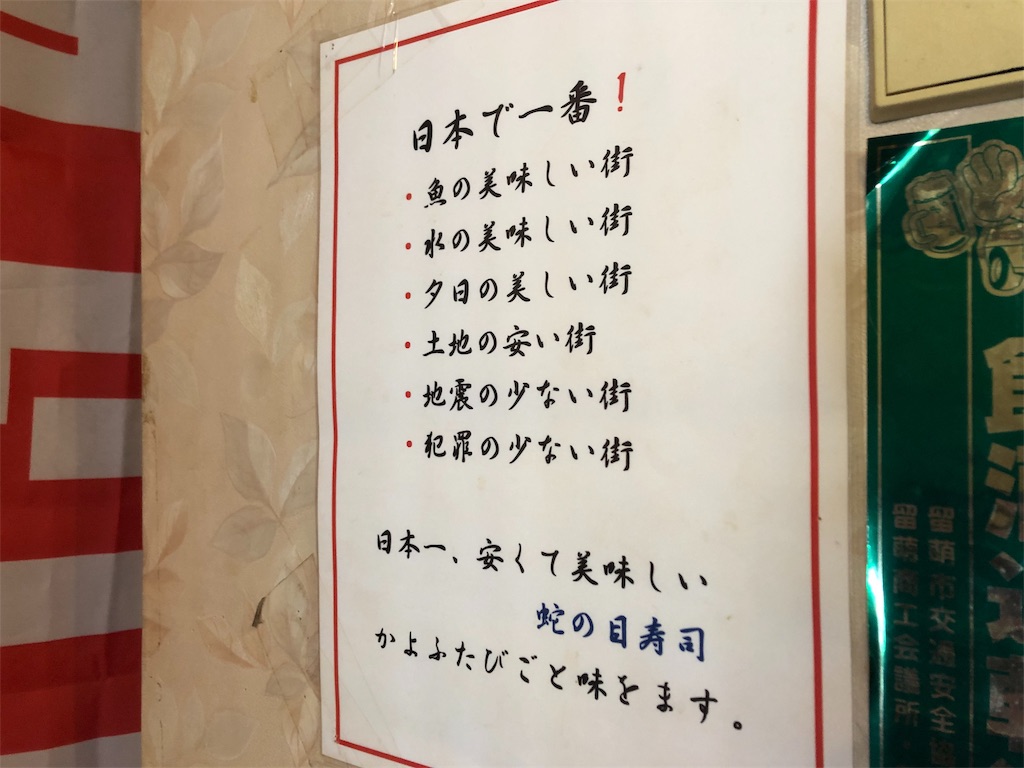 日本で一番!
・魚の美味しい街
・水の美味しい街
・夕日の美しい街
・土地の安い街
・地震の少ない街
・犯罪の少ない街
日本一、安くて美味しい
蛇の目寿司
かよふたびごと味をます。
留萌市交通安全
留萌商工会議所